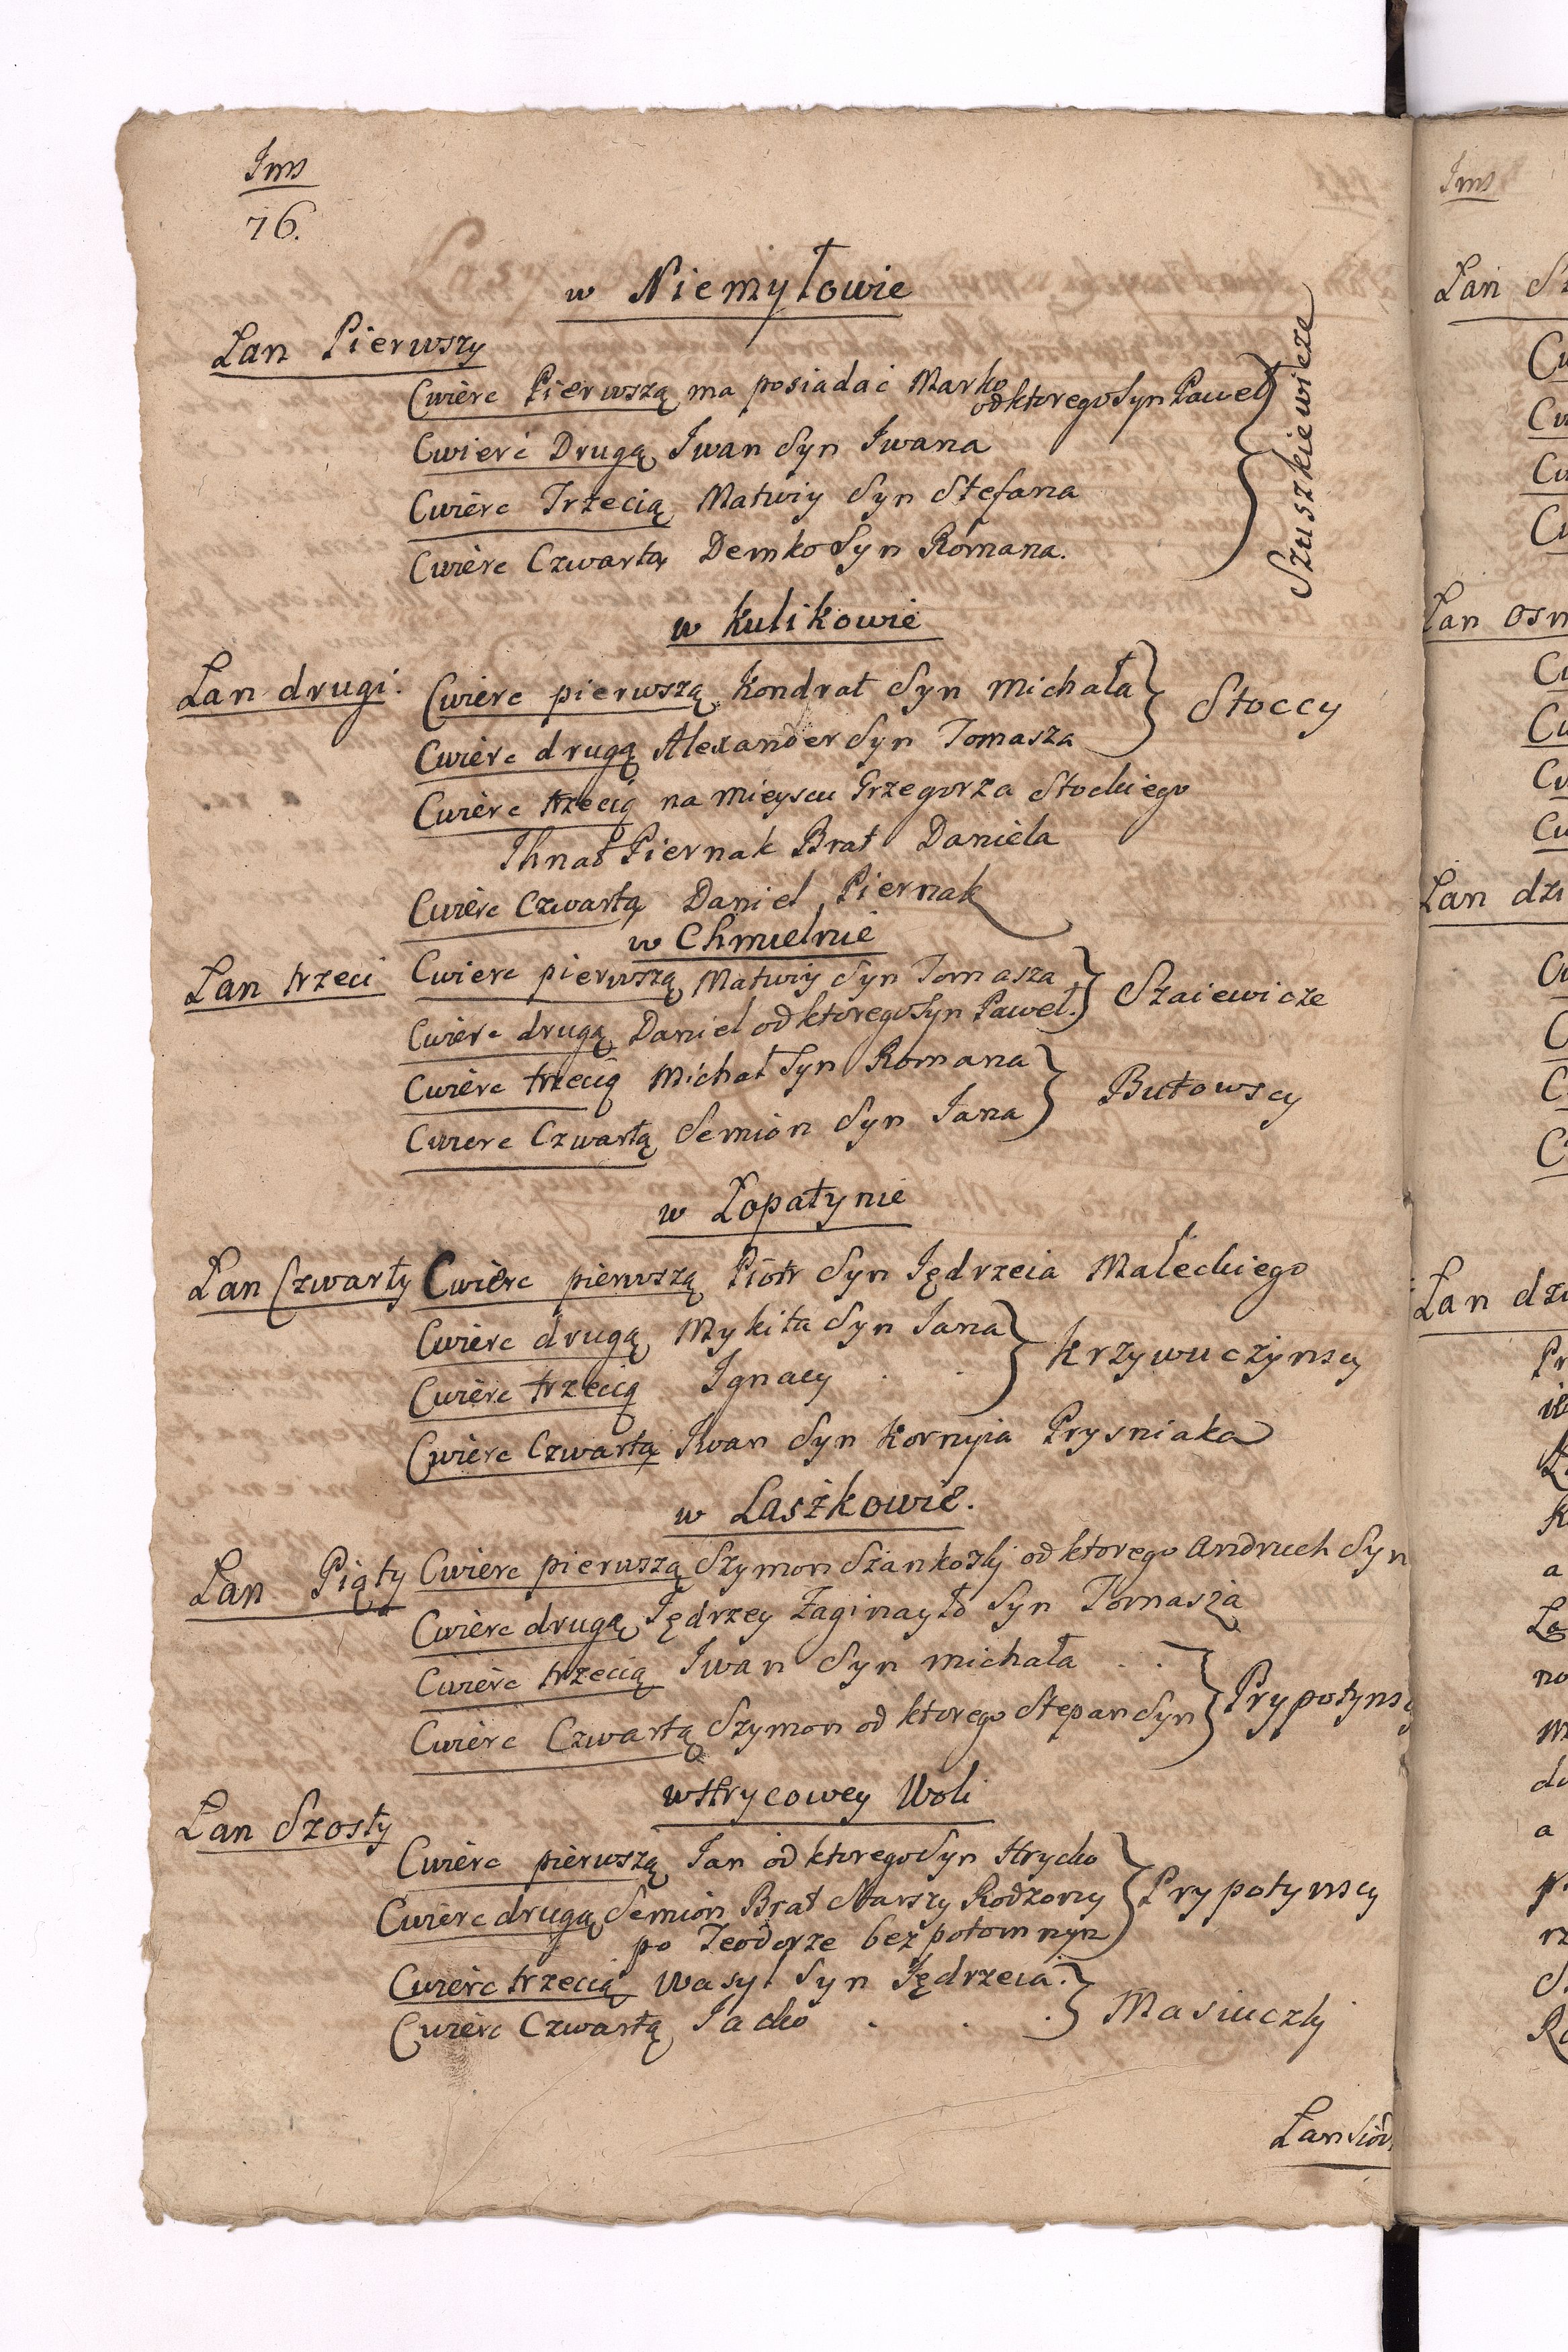 Ims
76.
w Niemyłowie
Łan Pierwszy
Cwierc Pierwszą ma posiadać Marko od ktorego Syn Paweł
Cwierć Drugą Iwan Syn Iwana
Cwierc Trzecią Matwiy Syn Stefana
Cwierc Czwartą Demko Syn Romana.
Szuszkiewicze
w Kulikowie
Łan drugi. Cwierc pierwszą Kondrat Syn Michała
Cwierc drugą Alexander Syn Tomasza
Stoccy
Cwierc trzecią na mieyscu Grzegorza Stockiego
Ihnat Piernak Brat Daniela
Cwierc Czwartą Daniel Piernak
w Chmielnie
Łan trzeci Cwierc pierwszą Matwiy Syn Tomasza
Cwierc drugą Daniel od ktorego Syn Paweł.
Szaiewicze
Cwierc trzecią Michał Syn Romana
Cwierc Czwartą Semion Syn Jana
Butowscy
w Łopatynie
Łan Czwarty Cwierc pierwszą Piotr Syn Jędrzeia Małeckiego
Cwierc drugą Mykita Syn Jana
Cwierc trzecią Ignacy . .
Krzywuczynscy
Cwierc Czwartą Iwan Syn Kornyia Prysniaka
w Laszkowie.
Łan Piąty Cwierc pierwszą Szymon Szankozkj od ktorego Andruch Syn
Cwierc drugą Jędrzey Zaginayło Syn Tomasza
Cwierc trzecią Iwan Syn Michała . .
Cwierc Czwartą Szymon od ktorego Stepan Syn
w Hrycowey Woli
Łan Szosty
Cwierc pierwszą Jan od ktorego Syn Hrycko
Cwierc drugą Semion Brat Starszy Rodzony
po Teodorze bez potomnym
Prypotynscy
Cwierc trzecią Wasyl Syn Jędrzeia.
Cwierc Czwartą Jacko . . .
Masiuczkj
Ims
Łan
Łan
Łan
Łan